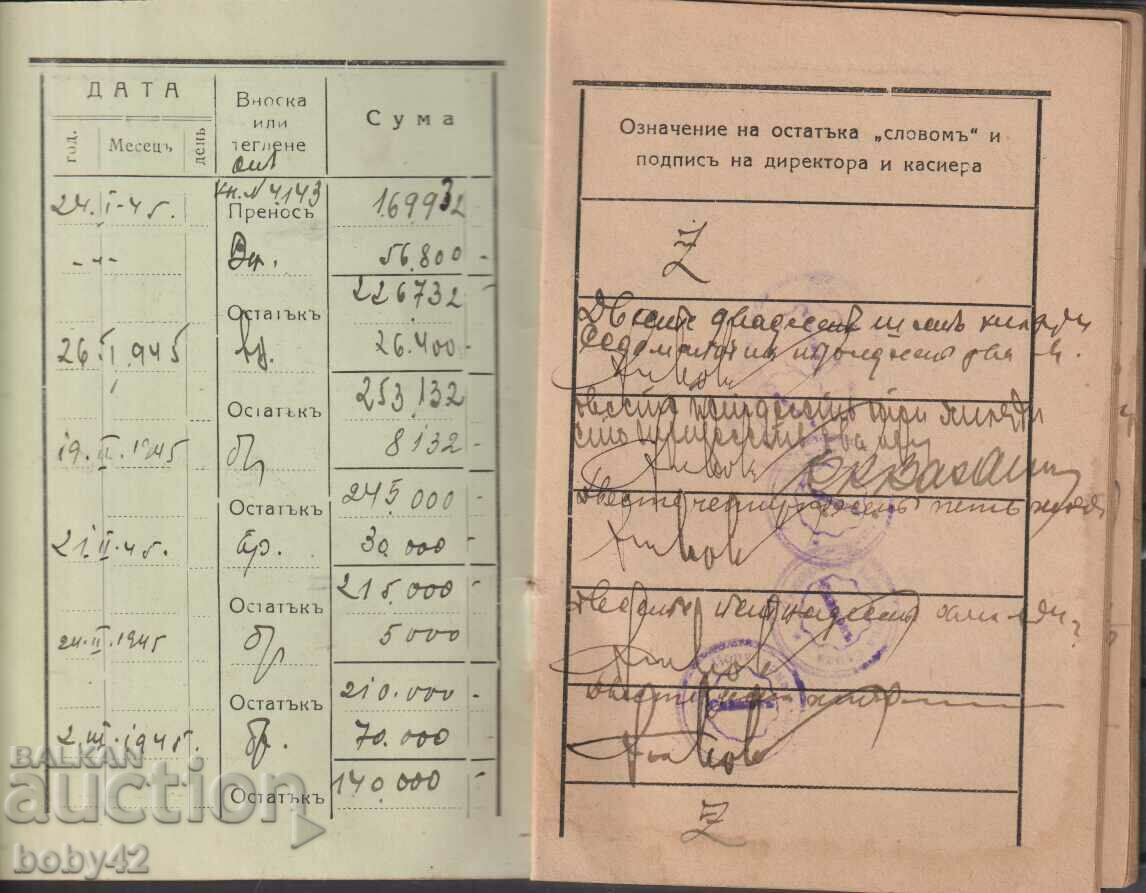 ДАТА
Вноска или теглене
Сума
год. Месецъ день
кн. N 4143
24. I - 45. Преносъ 169.932
- " - Вн. 56.800 -
Остатъкъ 226732 -
26. I. 945 26.400 -
Остатъкъ 253.132 -
19. II. 1945 бр 8132 -
Остатъкъ 245.000 -
21. II. 45. бр. 30.000 -
Остатъкъ 215.000 -
24. II. 1945 бр 5000 -
Остатъкъ 210.000 -
2. III. 1945. бр. 70.000 -
Остатъкъ 140.000 -
Означение на остатъка „словомъ“ и
подписъ на директора и касиера
Z
Двеста двадесеть шесть хиляди
Седемстотин тридесеть два
двеста петдесеть три хиляди
сто тридесеть два
Двеста четиридесеть петь
двеста петнадесеть хиляди
Z
BALKAN
auction
boby42